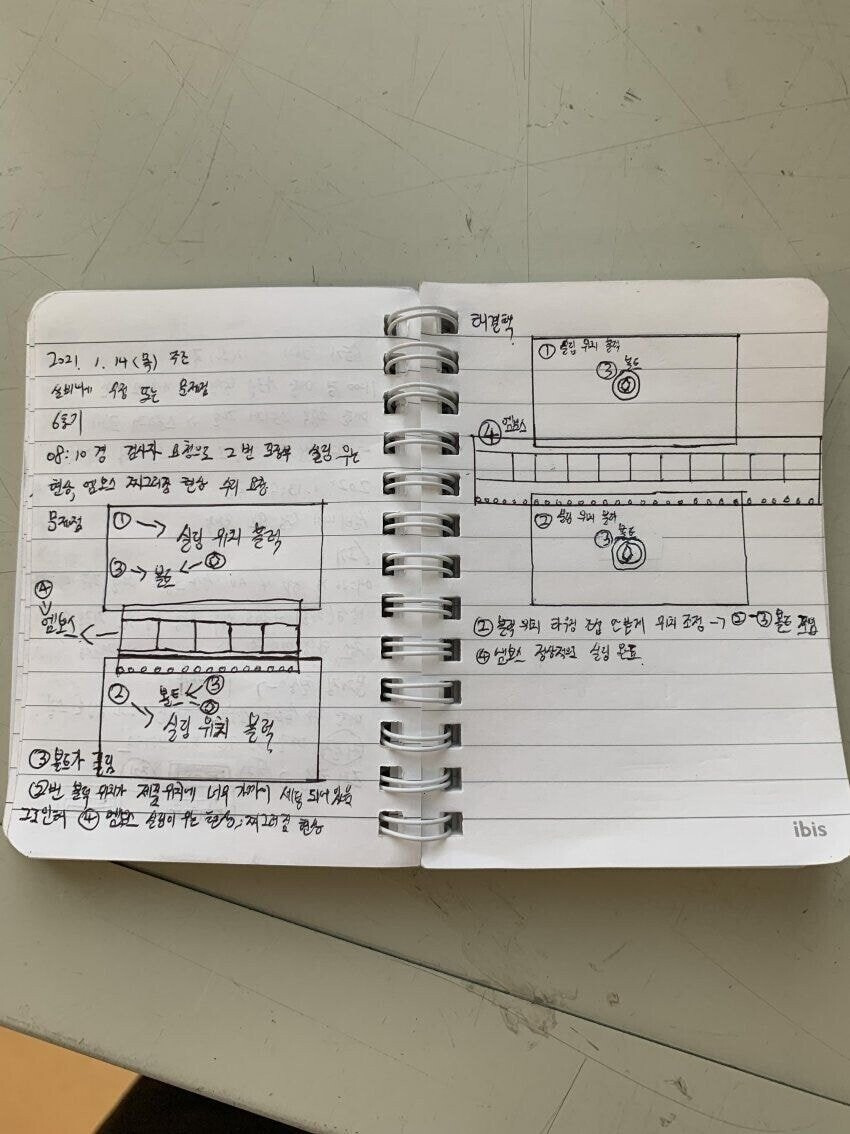 2021. 1. 14 (목) 주간
설비나에 수정 또는 문제점
6호기
08:10 경 검사자 요청으로 2번 포장부 실링 우는
현상, 엠보스 찌그러짐 현상 수리 요함
문제점
① → 실링 위치 블럭
③ → 볼트 ←
④
엠보스 ←
② 볼트 ← ③
→ 실링 위치 블럭
③ 볼트가 풀림
②번 블럭 위치가 제품위치에 너무 가까이 세팅 되어있음
그로인해 ④ 엠보스 실링이 우는 현상, 찌그러짐 현상
해결책
① 실링 위치 블럭
③ 볼트
④ 엠보스
② 실링 위치 블럭
③ 볼트
② 블럭 위치 위치 조정 → ② - ③ 볼트 조임
④ 엠보스 정상적인 실링 완료
ibis